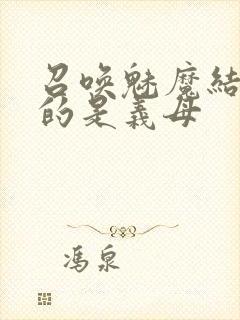 召唤魅魔結
的是義母
冯泉